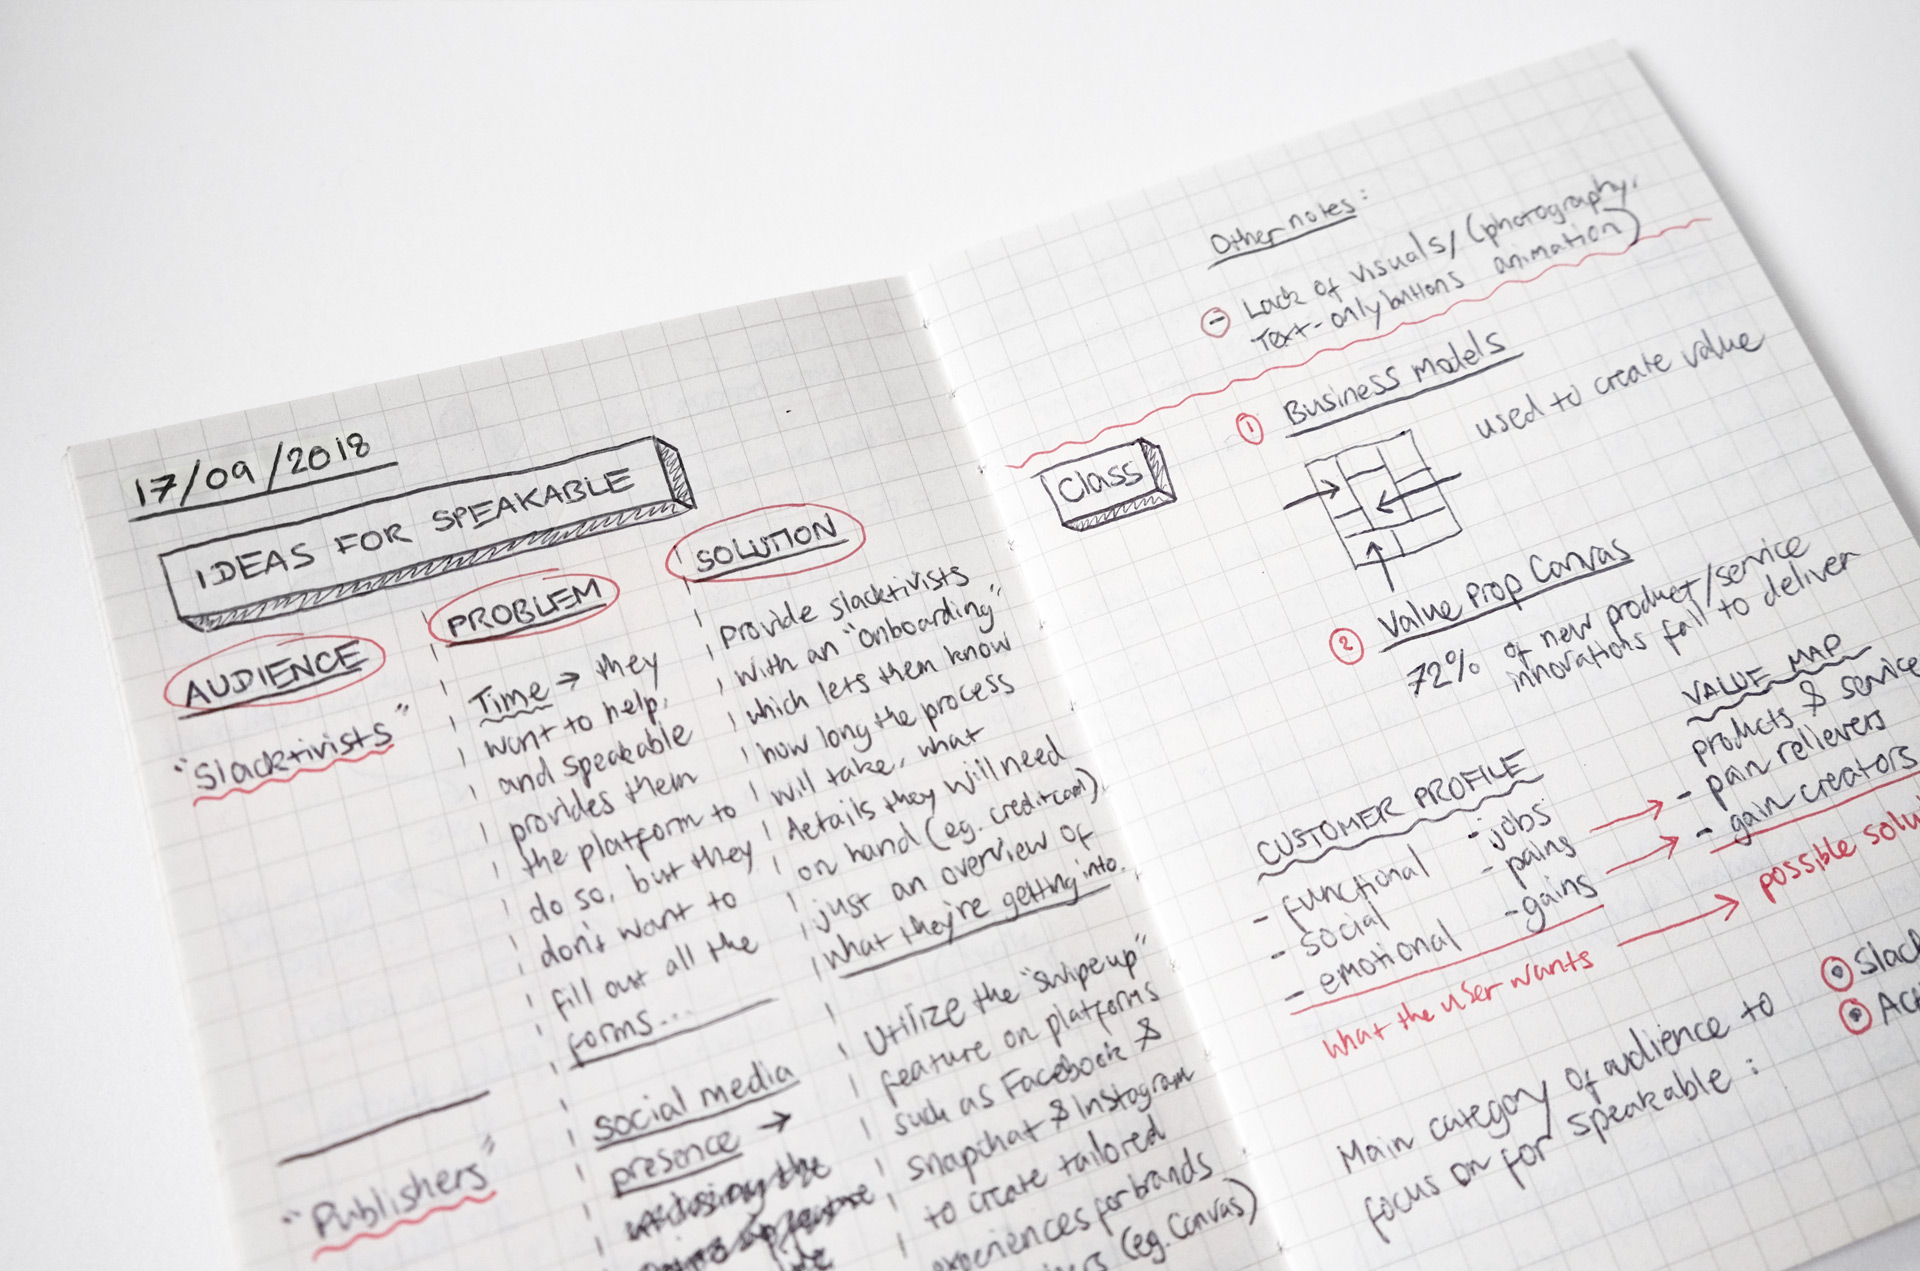 17/09/2018
IDEAS FOR SPEAKABLE
AUDIENCE
"Slacktivists"
PROBLEM
Time → they
want to help,
and speakable
provides them
the platform to
do so, but they
don't want to
fill out all the
forms...
SOLUTION
provide slacktivists
with an "onboarding"
which lets them know
how long the process
will take, what
details they will need
on hand (eg. credit card),
just an overview of
what they're getting into.
"Publishers"
social media
presence →
Utilize the "swipe up"
feature on platforms
such as Facebook &
snapchat & Instagram
to create tailored
experiences for brands
(eg. Canvas)
Other notes:
- Lack of visuals/ (photography,
Text-only buttons animation)
Class
1 Business Models
used to create value
2 Value Prop Canvas
72% of new product/service
innovations fail to deliver
CUSTOMER PROFILE
- functional
- social
- emotional
- jobs
- pains
- gains
what the user wants
VALUE MAP
products & service
- pain relievers
- gain creators
possible solu
Main category of audience to
focus on for speakable:
Slack
Act